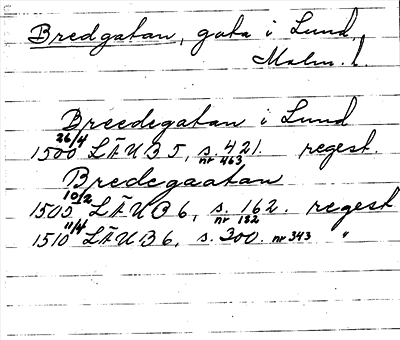 Bredgatan, gata i Lund,
Malm. l.
Breedegatan i Lund
1500 26/4 LÄUB 5, s. 421. nr 463 regest.
Bredegaatan
1505 10/2 LÄUB 6, s. 162. nr 182 regest
1510 11/4 LÄUB 6, s. 300. nr 343 "